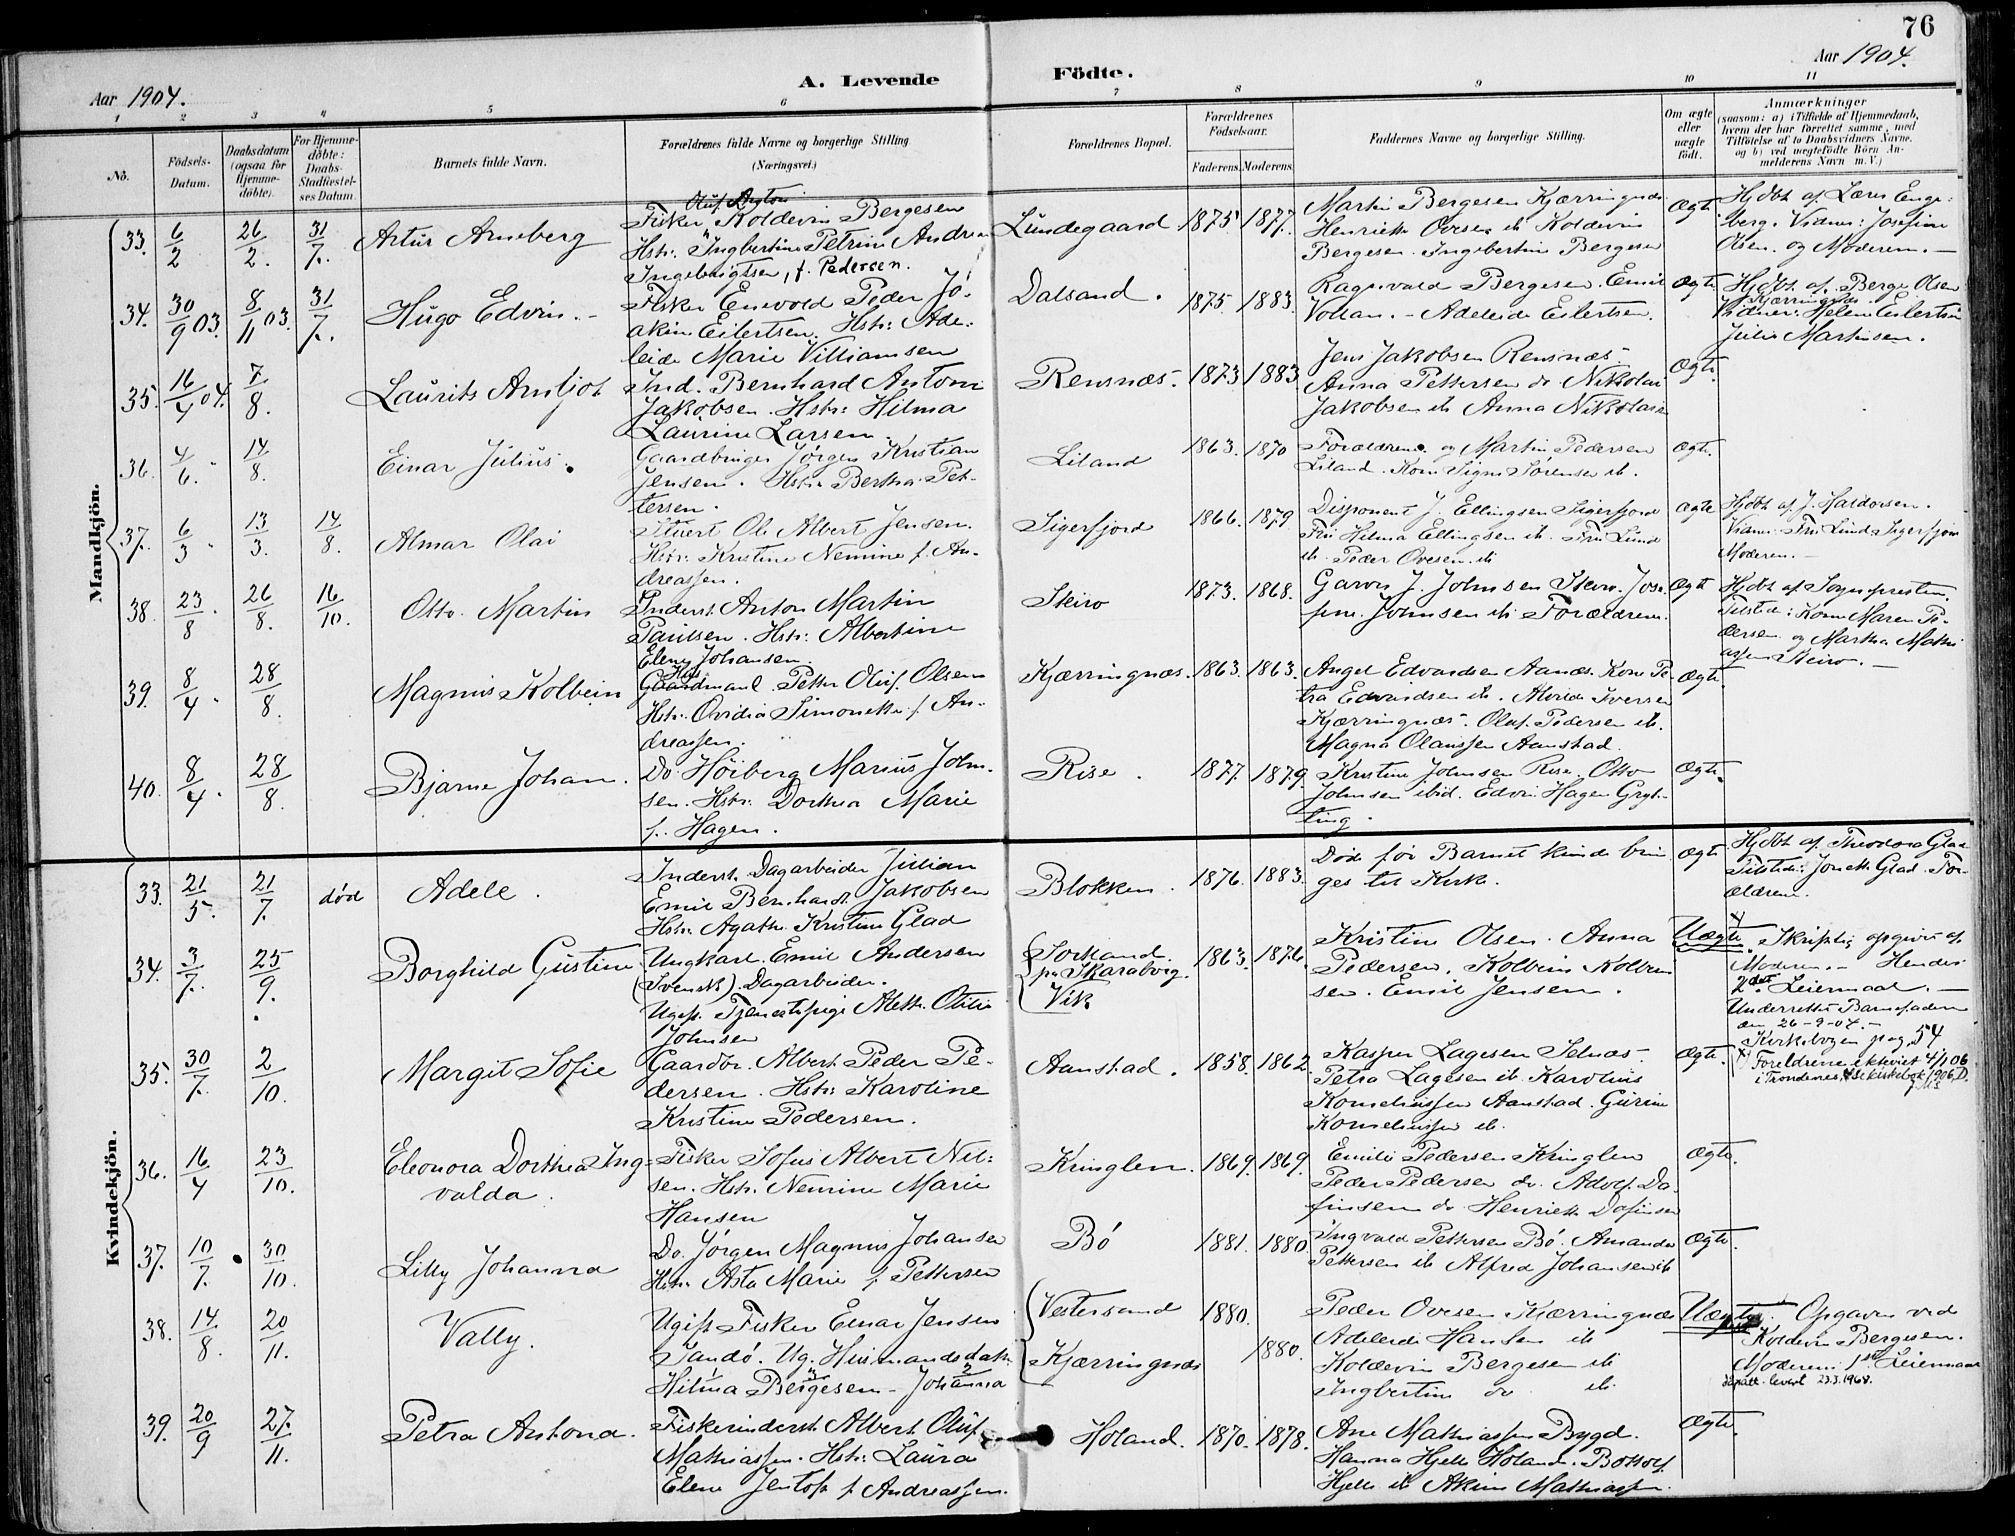 76
Aar 1904.
A. Levende Födte.
Aar 1904.
1 2 3 4 5 6 7 8 9 10 11
No.
Födsels-Datum.
Daabsdatum (ogsaa for Hjemme-döbte).
For Hjemme-döbte: Daabs-Stadfæstel-ses Datum.
Barnets fulde Navn.
Forældrenes fulde Navne og borgerlige Stilling (Næringsvei.)
Forældrenes Bopæl.
Forældrenes Födselsaar.
Faderens. Moderens.
Faddernes Navne og borgerlige Stilling.
Om ægte eller uægte födt.
Anmærkninger
(saasom: a) i Tilfælde af Hjemmedaab, hvem der har forrettet samme, med Tilföielse af to Daabsvidners Navne. og b) ved uægtefödte Börn An-melderens Navn m. V.)
Mandkjön.
33. 6/2 26/2. 31/7. Artur Arneberg
Oluf Anton
Fisker Koldevin Bergesen
Hstr: Ingbertine Petrine Andrea
Ingebrigtsen, f. Pedersen.
Lundegaard 1875 1877.
Martin Bergesen Kjærringnes
Henriette Ovesen ib Koldevin
Bergesen. Ingebertin Bergesen
Ægte
Hjdbt af Lærer Enge-
berg. Vidner: Josefine
Olsen. og Moderen. —
34. 30/9 03. 8/11 03. 31/7. Hugo Edvin. -
Fisker Enevold Peder Jo-
akim Eilertsen. Hstr: Ade-
leide Marie Villiamsen
Dalsand. 1875. 1883.
Ragnvald Bergesen. Emil
Voltan. - Adeleide Eilertsen.
Ægte.
Hjdbt af Berge Olsen
Kjærringnes.
Vidner: Helene Eilertsen
Julie Martinsen.
35. 16/4 04. 7/8. Laurits Arntjot
Ind. Bernhard Antoni
Jakobsen. Hstr: Hilma
Laurine Larsen
Rensnæs. 1873 1883
Jens Jakobsen Rensnæs.
Anna Pettersen do Nikolai
Jakobsen ib Anna Nikolais
Ægte.
36. 4/6. 14/8. Einar Julius.
Gaardbruger Jörgen Kristian
Jensen. Hstr. Bertha Pet-
tersen.
Liland 1863. 1870
Forældrene og Martin Pedersen
Liland. Kone Signe Sörensen ib.
Ægte.
37. 6/3. 13/3. 14/8. Almar Olai
Stuert Ole Albert Jensen.
Hstr: Kristine Nemine f. An-
dreassen.
Sigerfjord 1866. 1879.
Disponent J. Ellingsen Sigerfjord
Fru Hilma Ellingsen ib. Fru Lund
ib. Peder Ovesen. ib
Ægte
Hjdbt af J. Hardorsen.
Vidner Fru Lund Sigerfjord
Moderen. -
38. 23/8. 26/8. 16/10. Otto. Martin
Inderst. Anton Martin
Paulsen. Hstr: Albertine
Elene Johansen.
Skiro 1873. 1868.
J. Johnsen Skiro. Jose-
fine Johnsen ib Forældrene.
Ægte
Hjdbt af Sognepresten.
Tilstede: Kone Maren Pe-
dersen og Martha Mathi-
assen Skiro. -
39. 8/4. 28/8. Magnus Kolbein
Gaardmand Petter Oluf. Olsen
Hstr. Ovidia Simonette f. An-
dreassen.
Kjærringnæs. 1863. 1863.
Angel Edvardsen Aanæs. Kone Pe-
tra Edvardsen ib. Alvide Iversen
Kjærringnæs. Oluf. Pedersen ib.
Magna Olaussen Aanstad.
Ægte.
40. 8/4. 28/8. Bjarne Johan.
Do. Höiberg Marius John-
sen. Hstr. Dorthea Marie
f. Hagen.
Rise. 1877. 1879.
Kristine Johnsen Rise. Otto
Johnsen ibid. Edvin Hagen Gryt-
ting.
Ægte.
Kvindekjön.
33. 21/5. 21/7. död Adele.
Inderst. Dagarbeider Julian
Emil Bernhard Jakobsen
Hstr. Agathe Kristine Glad
Blokken. 1876. 1883.
Döde för Barnet kunde brin-
ges til Kirke.
Ægte
Hjdbt af Theodora Glad
Tilstede: Jonette Glad. For-
ældrene.
34. 3/7. 25/9. Borghild Gustine
Ungkarl Emil Andersen
(Svensk). Dagarbeider.
Ugift Tjenestepige Aleth. Otilie
Johnsen
Sortland.
pr Skarabvig.
Vik
1863. 1876.
Kristine Olsen. Anna
Pedersen. Kolbein Kolbein-
sen. Emil Jensen.
Uægte.
Skriftlig opgivet af
Moderen. - Hendes
2det Leiermaal. —
Underrettet Barnefaderen
den 26-9-04. -
Kirkebogen pag. 54
x) Foreldrene ektviet 4/1 06
i Trondenes, se kirkebok 1906, D.
35. 30/7. 2/10. Margit Sofie
Gaardbr. Albert Peder Pe-
dersen. Hstr: Karoline
Kristine Pedersen.
Aanstad. 1858. 1862.
Kasper Lagesen Selnæs.
Petra Lagesen ib Karolius
Korneliussen Aanstad. Gurine
Korneliussen ib.
Ægte.
36. 16/4 23/10. Eleonora Dorthea Ing-
valda.
Fisker Sofus Albert Nil-
sen. Hstr. Nemine Marie
Hansen
Kringlen. 1869. 1869.
Emilie Pedersen Kringlen
Peder Pedersen do. Adolf. Da-
finsen do Henriette Dafinsen
Ægte.
37. 10/7. 30/10. Lilly Johanna
Do. Jörgen Magnus Johansen
Hstr Asta Marie f Pettersen
Bö 1881. 1880.
Ingvald Pettersen Bö. Amanda
Pettersen ib Alfred Johansen ib
Ægte.
38. 14/8. 20/11. Vally.
Ugift Fisker Einar Jensen
Sandö. Ug. Husmandsdatter
Hilma Bergesen - Johanna
Vestersand 1880.
Kjærringnæs 1880.
Peder Ovesen Kjærringnæs
Adeleide Hansen ib
Koldevin Bergesen ib
Ingbertine do ib.
Uægte
Opgaven ved
Koldevin Bergesen.
Moderens 1ste Leiermaal
Dåpsatt. levert 23.3.1968.
39. 20/9 27/11. Petra Antona.
Fiskerinderst. Albert Oluf
Mathiassen. Hstr: Laura
Elene Jentoft f Andreassen.
Holand. 1870. 1878.
Ane Mathiassen Bygd.
Hanna Hjelle Holand. Bottolf.
Hjelle ib Akim Mathiassen.
Ægte.